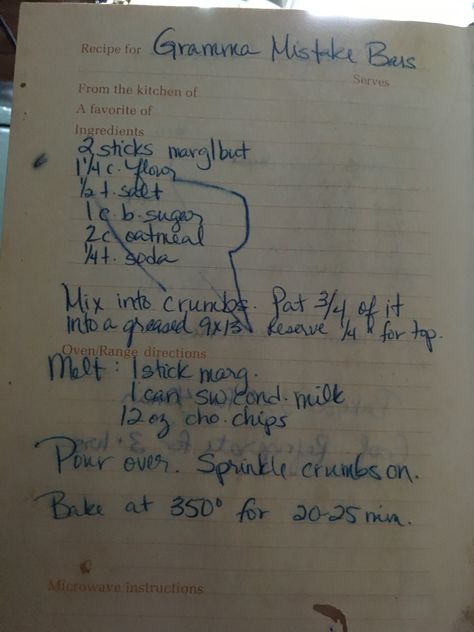 Recipe for Gramma Mistake Bars
Serves
From the kitchen of
A favorite of
Ingredients
2 sticks marg/but
1 1/4 c. flour
1/2 t. salt
1 c b. sugar
2c oatmeal
1/4 t. soda
Mix into crumbs. Pat 3/4 of it
into a greased 9x13. Reserve 1/4 for top.
Oven/Range directions
Melt: 1 stick marg.
1 can sw. cond. milk
12 oz cho. chips
Pour over. Sprinkle crumbs on.
Bake at 350° for 20-25 min.
Microwave instructions